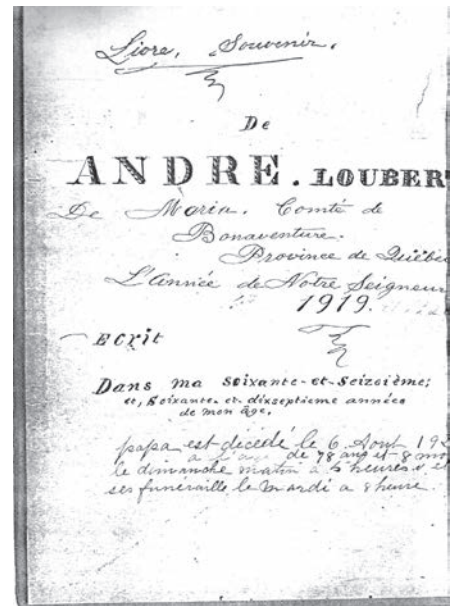 Livre, Souvenir.
De
ANDRE. LOUBERT
De Maria. Comté de
Bonaventure.
Province de Québec
L'Année de Notre Seigneur
1919.
Ecrit
Dans ma Soixante-et-Seizoième;
et, Soixante-et-dixseptieme années
de mon âge.
papa est décédé le 6 Aout 192
a l'age de 78 ans et 8 mo
le dimanche matin a heures et
ses funéraille le Mardi a 8 heure.